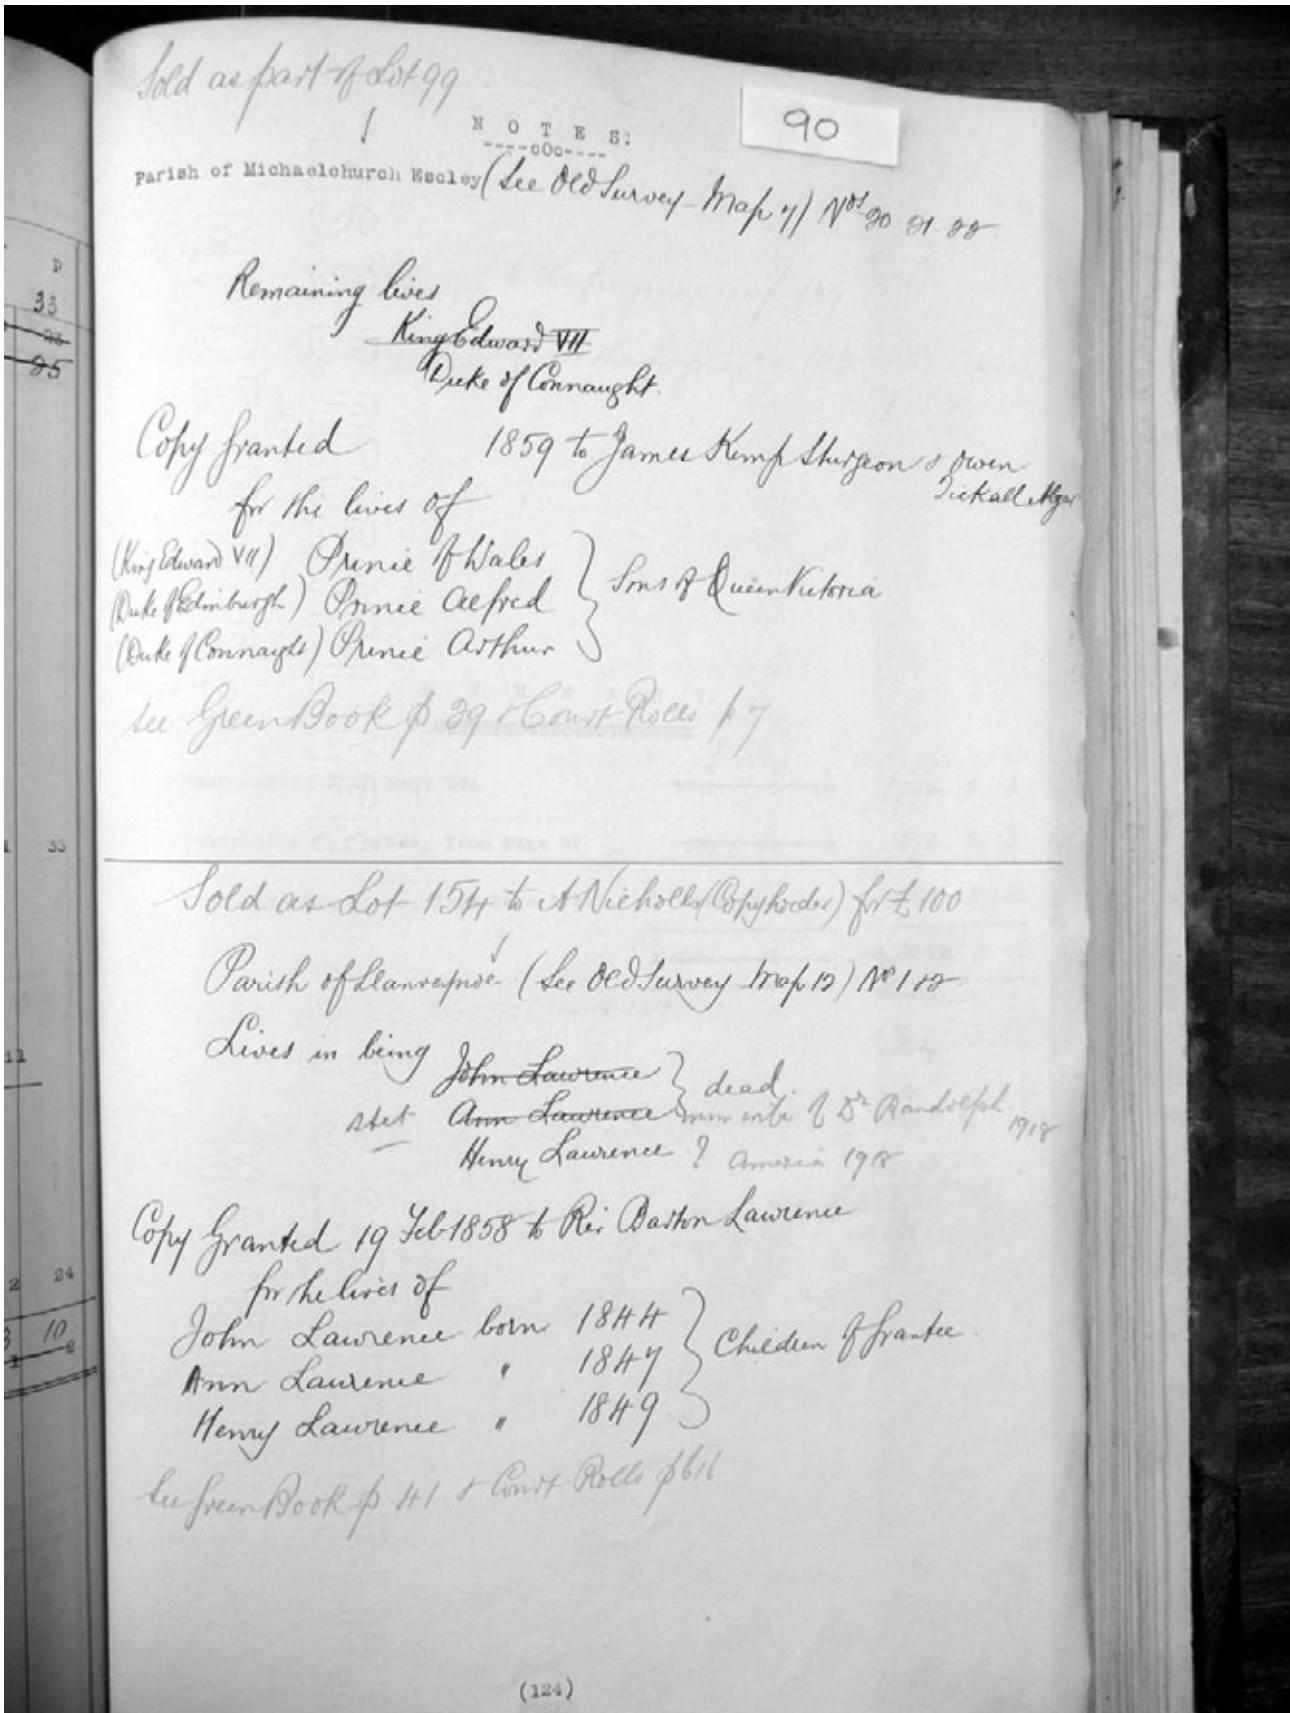 Sold as part of Lot 99
90
NOTES:
----oOo----
Parish of Michaelchurch Escley (See Old Survey - Map 7) Nos 20 21. 22
P
33
23
25
Remaining lives
King Edward VII
Duke of Connaught.
Copy Granted 1859 to James Kemp Sturgeon & Owen
Tickall Algar
for the lives of
(King Edward VII) Prince of Wales
(Duke of Edinburgh) Prince Alfred
(Duke of Connaught) Prince Arthur
Sons of Queen Victoria
see Green Book p 39 & Court Rolls p 7
33
Sold as Lot 154 to A Nicholls (Copyholder) for £100
Parish of (See Old Survey Map 12) No 1 & 2
Lives in being
John Lawrence } dead.
stet Ann Lawrence wife of Dr Randolph 1918
Henry Lawrence ? America
11
Copy Granted 19 Feb 1858 to Rev Barton Lawrence
for the lives of
John Lawrence born 1844
Ann Lawrence " 1847
Henry Lawrence " 1849
Children of Grantee.
2 24
3 10
see Green Book p 41 & Court Rolls p
(124)